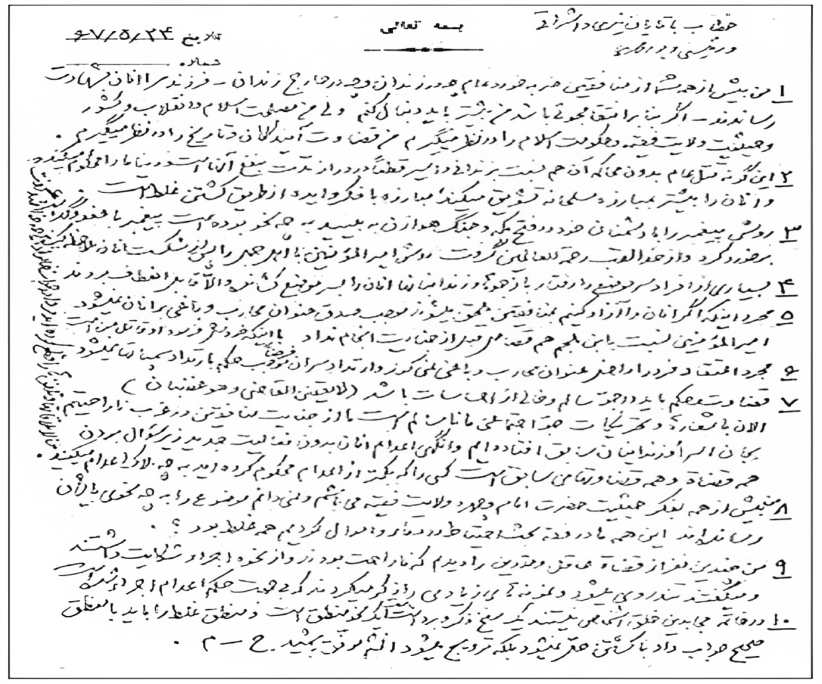 بسمه تعالی
تاریخ ۶۷/۵/۲۴
شماره
خطاب به آقایان نیری و اشراقی
و رئیسی و پورمحمدی
۱ من بیش از همه شما از منافقین ضربه خورده‌ام چه در زندان و چه در خارج زندان - فرزند مرا آنان بشهادت
رساندند - اگر بنا بر انتقامجوئی باشد من بیشتر باید دنبال کنم ولی من مصلحت اسلام و انقلاب و کشور
و حیثیت ولایت فقیه و حکومت اسلام را در نظر میگیرم من قضاوت آیندگان و تاریخ را در نظر میگیرم .
۲ این گونه قتل عام بدون محاکمه آن هم نسبت بزندانی و اسیر قطعاً در دراز مدت بنفع آنها است و دنیا ما را محکوم میکند
و آنان را بیشتر بمبارزه مسلحانه تشویق میکند، مبارزه با فکر و ایده از طریق کشتن غلط است
۳ روش پیغمبر را با دشمنان خود در فتح مکه و جنگ هوازن به بینید به چه نحو بوده است پیغمبر با عفو و گذشت
برخورد کرد و از خدا لقب رحمة للعالمین گرفت روش امیرالمؤمنین با اهل جمل را پس از شکست آنان ملاحظه کنید
۴ بسیاری از افراد سر موضع را رفتار بازجوها و زندانبانها آنان را بسر موضع کشانده و الا قابل انعطاف بودند
۵ مجرد اینکه اگر آنان را آزاد کنیم بمنافقین ملحق میشوند موجب صدق عنوان محارب و باغی بر آنان نمیشود
امیرالمؤمنین نسبت به ابن ملجم هم قصاص قبل از جنایت انجام نداد با اینکه خودش فرمود او قاتل من است
۶ مجرد اعتقاد فرد را داخل عنوان محارب و باغی نمی‌کند و ارتداد سران فرضاً موجب حکم بارتداد سمپاتها نمیشود
۷ قضاوت و حکم باید در جو سالم و خالی از احساسات باشد (لا یقضین القاضی و هو غضبان)
الان با شعارها و تحریکات جو اجتماعی ما ناسالم است ما از جنایت منافقین در غرب ناراحتیم
بجان اسرا و زندانیان سابق افتاده‌ایم وانگهی اعدام آنان بدون فعالیت جدید زیر سؤال بردن
همه قضاة و همه قضاوتهای سابق است کسی را که بکمتر از اعدام محکوم کرده‌اید به چه ملاک اعدام میکنید
۸ من بیش از همه بفکر حیثیت حضرت امام و چهره ولایت فقیه می باشم و نمی دانم موضوع را به چه نحوی بایشان
رسانده‌اند این همه ما در فقه بحث احتیاط در دماء و اموال کرده‌ایم همه غلط بود ؟ .
۹ من چندین نفر از قضاة عاقل و متدین را دیدم که ناراحت بودند و از نحوه اجرا شکایت داشتند
و میگفتند تندروی میشود و نمونه های زیادی را ذکر میکردند که بی جهت حکم اعدام اجرا شده
۱۰ در خاتمه مجاهدین خلق اشخاص نیستند یک سنخ فکر و برداشت است یک نحو منطق است و منطق غلط را باید با منطق
صحیح جواب داد با کشتن حل نمیشود بلکه ترویج میشود انشاءالله موفق باشید . ح - م .